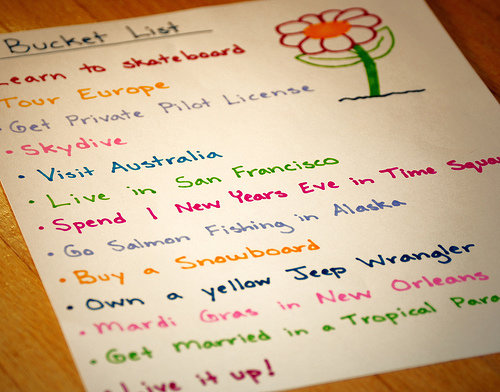 Bucket List
Learn to skateboard
Tour Europe
• Get Private Pilot License
• Skydive
• Visit Australia
• Live in San Francisco
• Spend 1 New Years Eve in Time Squa
• Go Salmon Fishing in Alaska
• Buy a Snowboard
• Own a yellow Jeep Wrangler
• Mardi Gras in New Orleans
• Get Married in a Tropical Para
• Live it up!